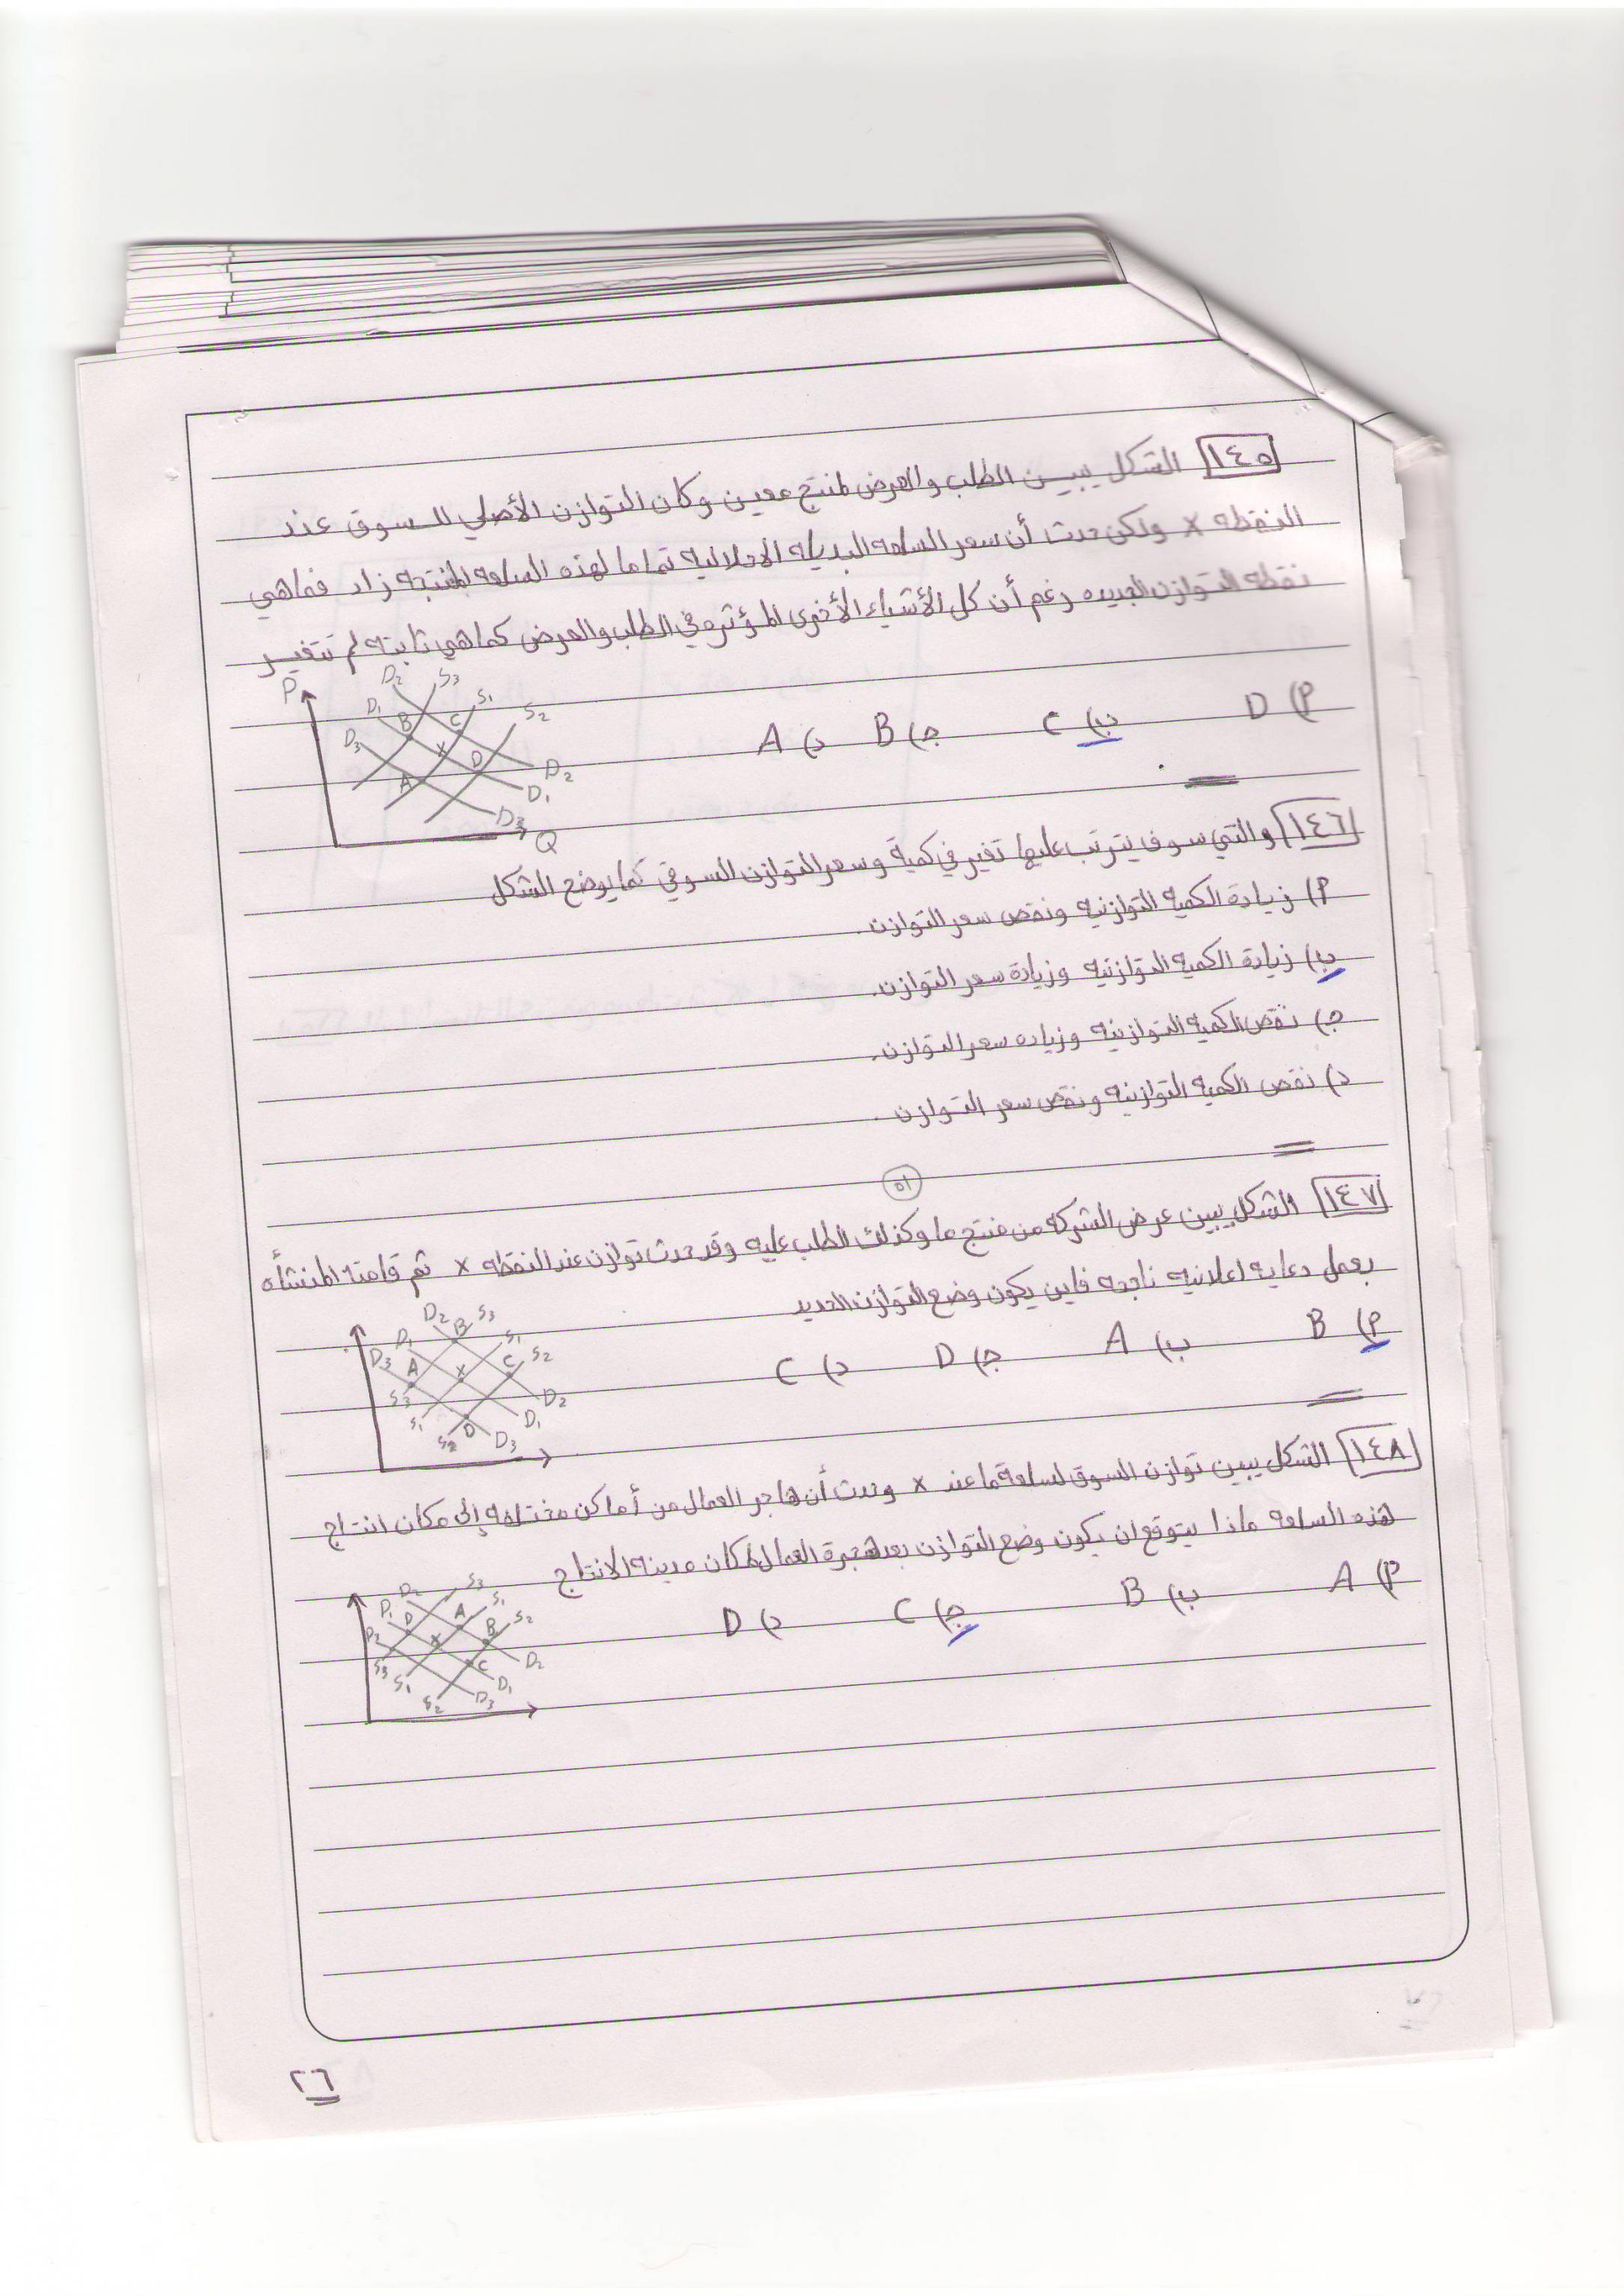 ١٤٥ الشكل يبين الطلب والعرض لمنتج معين وكان التوازن الأصلي للسوق عند
النقطه x ولكن حدث أن سعر السلعه البديله الاحلاليه تماما لهذه السلعه المنتجه زاد فماهي
نقطه التوازن الجديده رغم أن كل الأشياء الأخرى المؤثره في الطلب والعرض كماهي ثابته لم تتغير
أ) D ب) C ج) B د) A
P D2 S3 D1 B C S1 S2 D3 x D A D2 D1 D3 Q
١٤٦ والتي سوف يترتب عليها تغير في كمية وسعر التوازن السوقي كما يوضح الشكل
أ) زيادة الكميه التوازنيه ونقص سعر التوازن.
ب) زيادة الكميه التوازنيه وزيادة سعر التوازن.
ج) نقص الكميه التوازنيه وزياده سعر التوازن.
د) نقص الكميه التوازنيه ونقص سعر التوازن.
٥١
١٤٧ الشكل يبين عرض الشركه من منتج ما وكذلك الطلب عليه وقد حدث توازن عند النقطه x ثم قامت المنشأه
بعمل دعايه اعلانيه ناجحه فاين يكون وضع التوازن الجديد
أ) B ب) A ج) D د) C
D2 B S3 D1 S1 D3 A x C S2 S3 S1 D2 D1 S2 D D3
١٤٨ الشكل يبين توازن السوق لسلعة ما عند x وحدث أن هاجر العمال من أماكن مختلفه إلى مكان انتاج
هذه السلعه ماذا يتوقع ان يكون وضع التوازن بعد هجرة العمال لمكان مدينه الانتاج
أ) A ب) B ج) C د) D
D2 S3 D1 D A S1 B S2 D3 x S3 C D2 S1 D1 S2 D3
٢٦